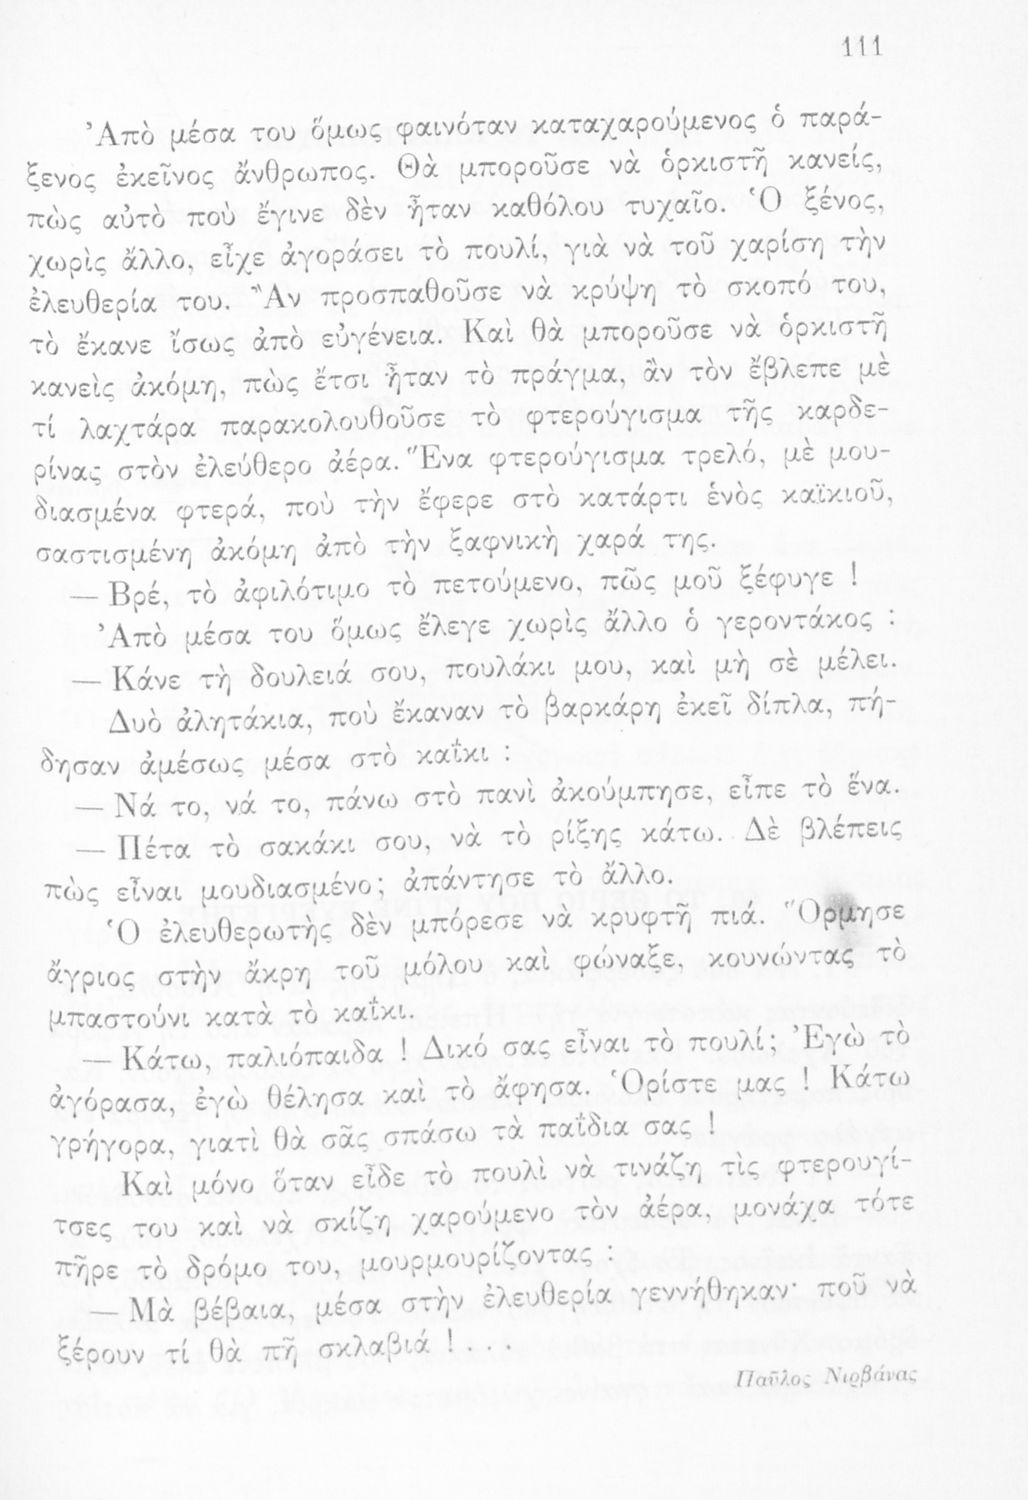 111
Ἀπὸ μέσα του ὅμως φαινόταν καταχαρούμενος ὁ παρά-
ξενος ἐκεῖνος ἄνθρωπος. Θὰ μποροῦσε νὰ ὁρκιστῆ κανείς,
πὼς αὐτὸ ποὺ ἔγινε δὲν ἦταν καθόλου τυχαῖο. Ὁ ξένος,
χωρὶς ἄλλο, εἶχε ἀγοράσει τὸ πουλί, γιὰ νὰ τοῦ χαρίση τὴν
ἐλευθερία του. Ἂν προσπαθοῦσε νὰ κρύψη τὸ σκοπό του,
τὸ ἔκανε ἴσως ἀπὸ εὐγένεια. Καὶ θὰ μποροῦσε νὰ ὁρκιστῆ
κανεὶς ἀκόμη, πὼς ἔτσι ἦταν τὸ πράγμα, ἂν τὸν ἔβλεπε μὲ
τί λαχτάρα παρακολουθοῦσε τὸ φτερούγισμα τῆς καρδε-
ρίνας στὸν ἐλεύθερο ἀέρα. Ἕνα φτερούγισμα τρελό, μὲ μου-
διασμένα φτερά, ποὺ τὴν ἔφερε στὸ κατάρτι ἑνὸς καϊκιοῦ,
σαστισμένη ἀκόμη ἀπὸ τὴν ξαφνικὴ χαρά της.
— Βρέ, τὸ ἀφιλότιμο τὸ πετούμενο, πῶς μοῦ ξέφυγε !
Ἀπὸ μέσα του ὅμως ἔλεγε χωρὶς ἄλλο ὁ γεροντάκος :
— Κάνε τὴ δουλειά σου, πουλάκι μου, καὶ μὴ σὲ μέλει.
Δυὸ ἀλητάκια, ποὺ ἔκαναν τὸ βαρκάρη ἐκεῖ δίπλα, πή-
δησαν ἀμέσως μέσα στὸ καΐκι :
— Νά το, νά το, πάνω στὸ πανὶ ἀκούμπησε, εἶπε τὸ ἕνα.
— Πέτα τὸ σακάκι σου, νὰ τὸ ρίξης κάτω. Δὲ βλέπεις
πὼς εἶναι μουδιασμένο; ἀπάντησε τὸ ἄλλο.
Ὁ ἐλευθερωτὴς δὲν μπόρεσε νὰ κρυφτῆ πιά. Ὅρμησε
ἄγριος στὴν ἄκρη τοῦ μόλου καὶ φώναξε, κουνώντας τὸ
μπαστούνι κατὰ τὸ καΐκι.
— Κάτω, παλιόπαιδα ! Δικό σας εἶναι τὸ πουλί; Ἐγὼ τὸ
ἀγόρασα, ἐγὼ θέλησα καὶ τὸ ἄφησα. Ὁρίστε μας ! Κάτω
γρήγορα, γιατὶ θὰ σᾶς σπάσω τὰ παΐδια σας !
Καὶ μόνο ὅταν εἶδε τὸ πουλὶ νὰ τινάζη τὶς φτερουγί-
τσες του καὶ νὰ σκίζη χαρούμενο τὸν ἀέρα, μονάχα τότε
πῆρε τὸ δρόμο του, μουρμουρίζοντας :
— Μὰ βέβαια, μέσα στὴν ἐλευθερία γεννήθηκαν· ποῦ νὰ
ξέρουν τί θὰ πῆ σκλαβιά ! . . .
Παῦλος Νιρβάνας